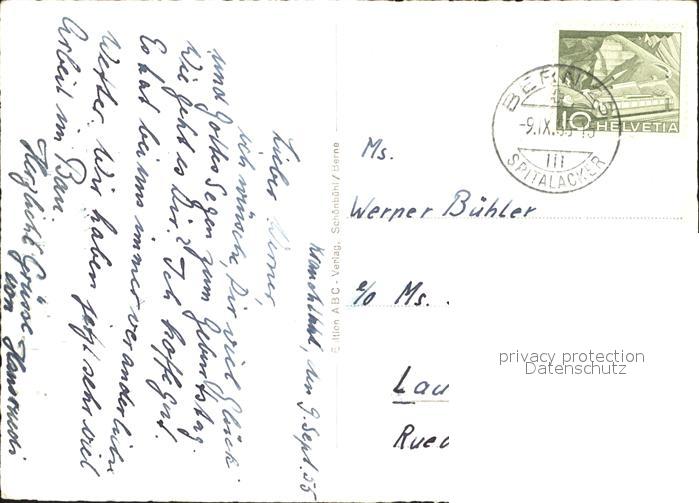 Krauchthal, den 9. Sept. 55
Lieber Werner,
ich wünsche Dir viel Glück
und Gottes Segen zum Geburtstag.
Wie geht es Dir? Ich hoffe gut.
Es hat bei uns immer veränderliches
Wetter. Wir haben jetzt sehr viel
Arbeit im Bau
Herzliche Grüsse
von Hansruedi
Edition ABC - Verlag, Schönbühl / Berne
BERN 25
-9.IX.55-
III
SPITALACKER
10 HELVETIA
Ms.
Werner Bühler
c/o Ms.
Lau
Rued
privacy protection
Datenschutz